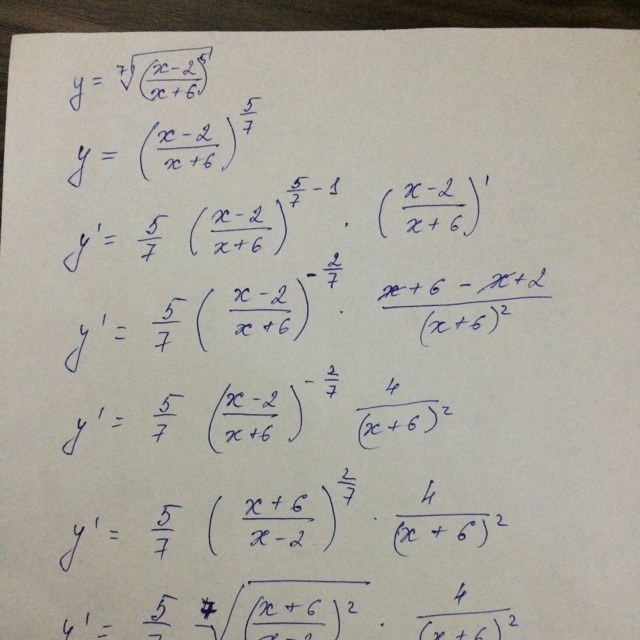 y = ⁷√((x-2)/(x+6))⁵
y = ((x-2)/(x+6))^(5/7)
y' = 5/7 ((x-2)/(x+6))^(5/7 - 1) · ((x-2)/(x+6))'
y' = 5/7 ((x-2)/(x+6))^(-2/7) · (x+6-x+2)/(x+6)²
y' = 5/7 ((x-2)/(x+6))^(-2/7) 4/(x+6)²
y' = 5/7 ((x+6)/(x-2))^(2/7) · 4/(x+6)²
y' = 5/7 ⁷√((x+6)/(x-2))² · 4/(x+6)²